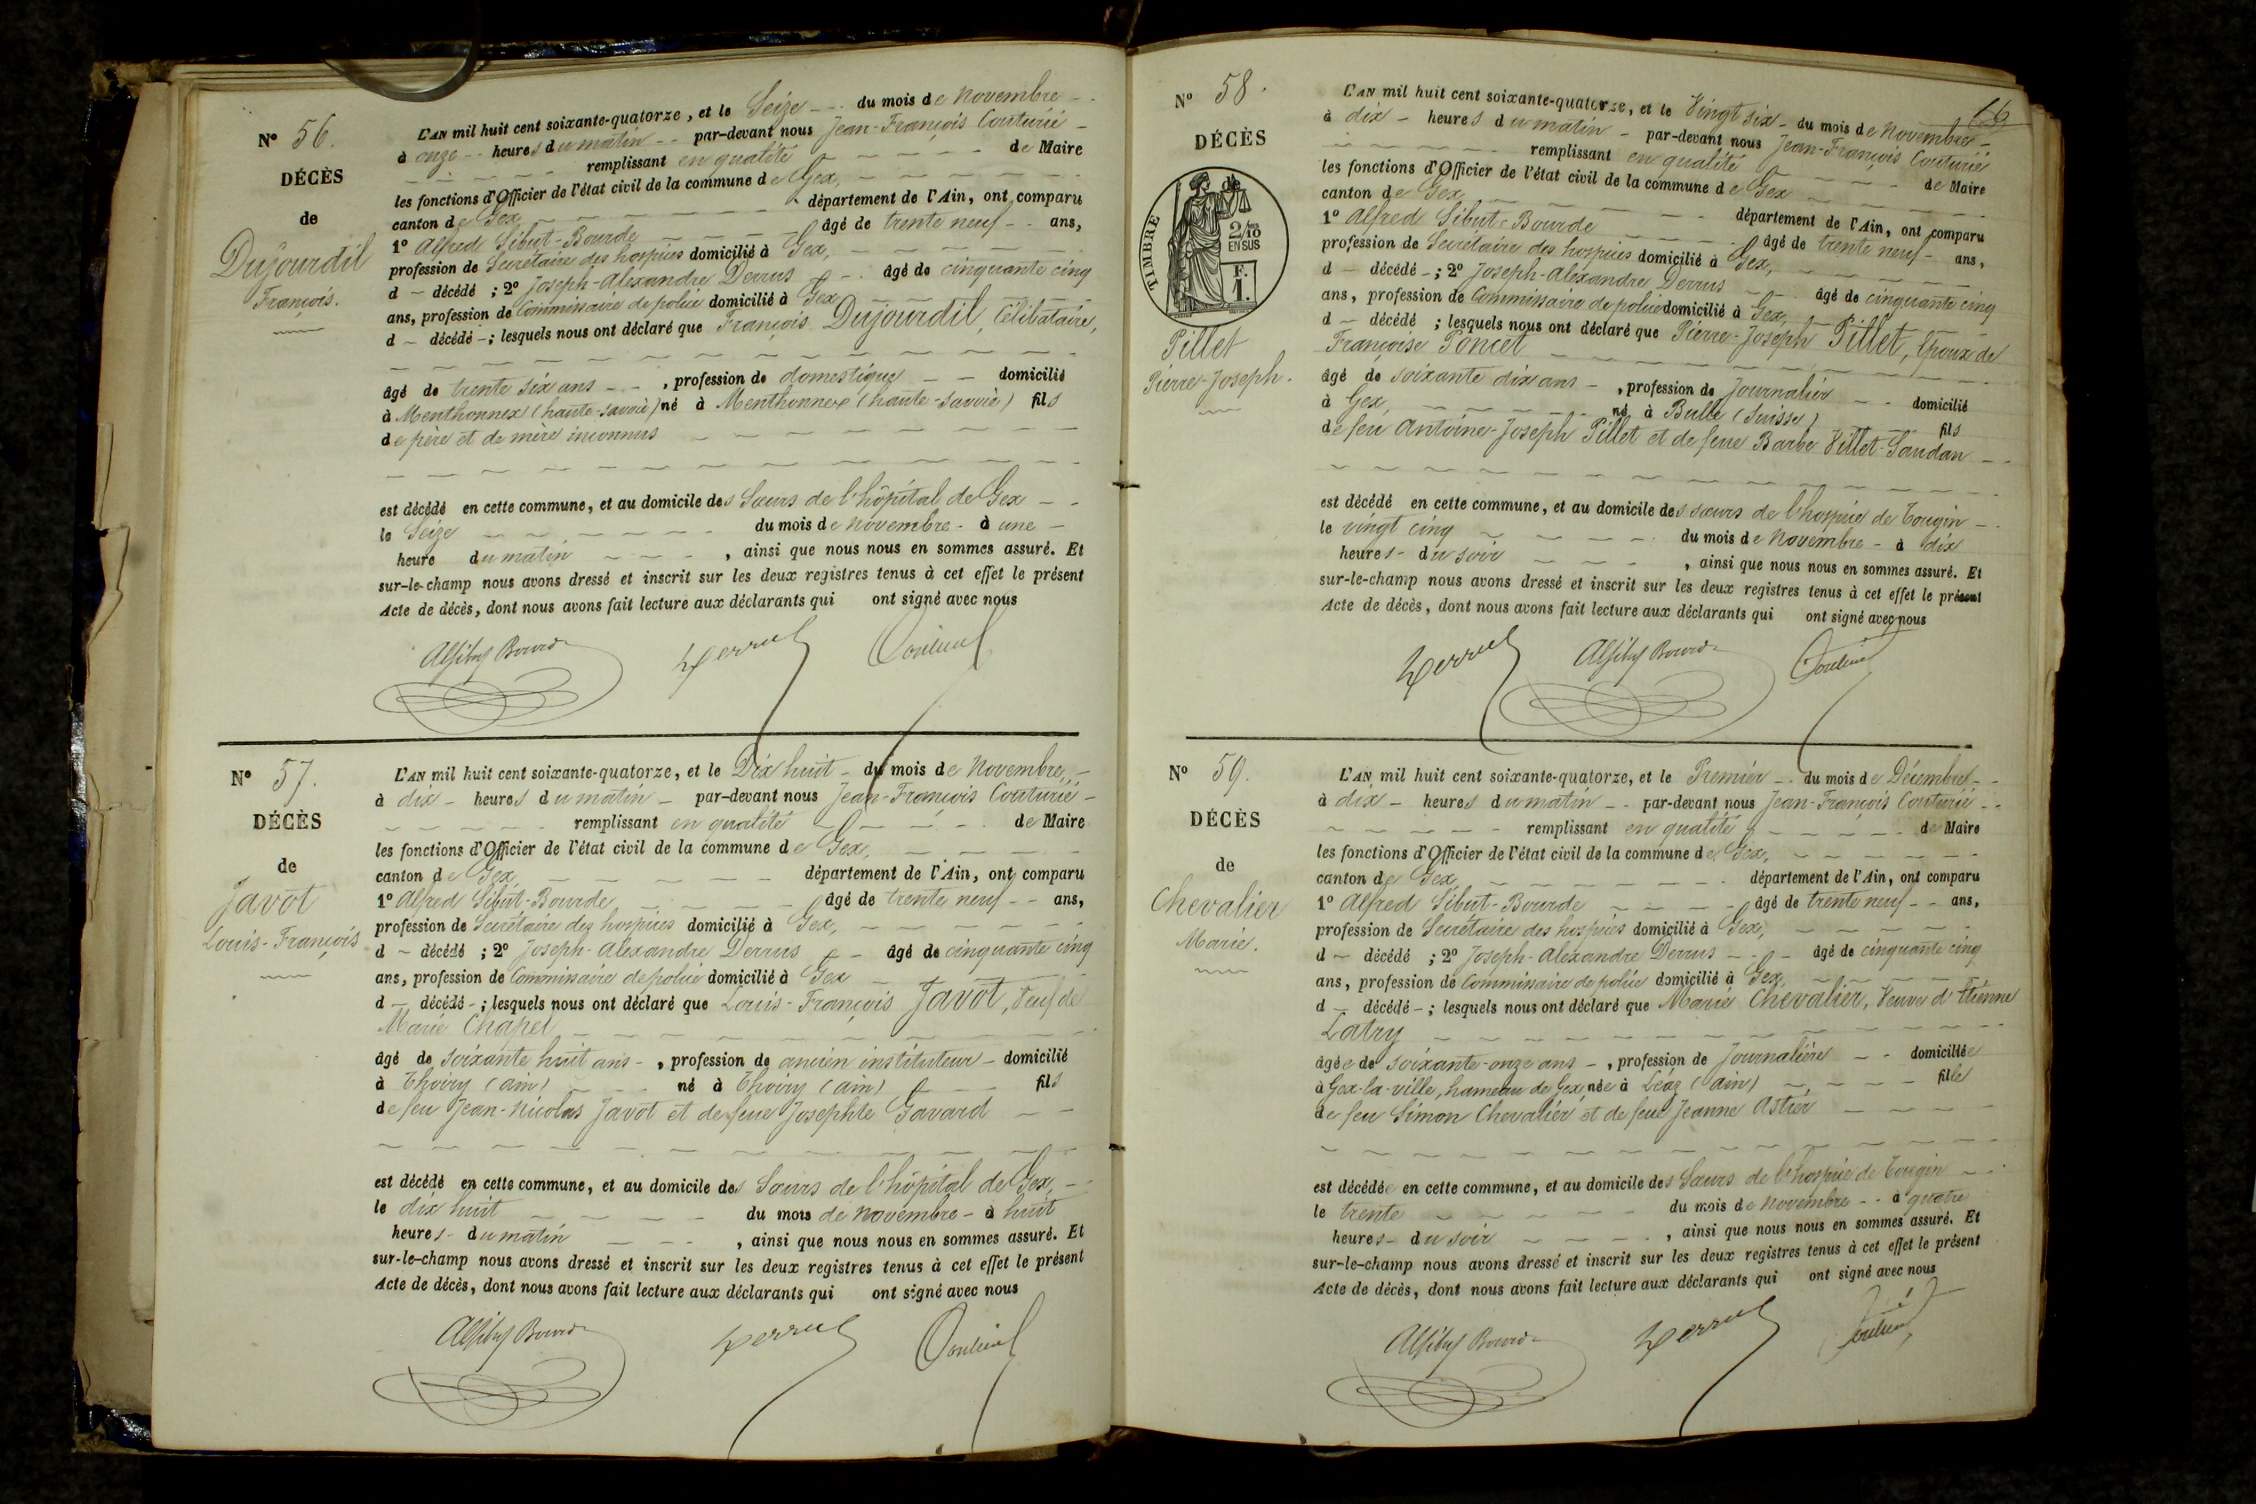 N° 56.
DÉCÈS
de
Dujourdil
François.
L'AN mil huit cent soixante-quatorze, et le Seize du mois de Novembre
à onze heures du matin par-devant nous Jean-François Couturié
remplissant en qualité de Maire
les fonctions d'Officier de l'état civil de la commune de Gex,
canton de Gex département de l'Ain, ont comparu
1° Alfred Sibut-Bourde âgé de trente neuf ans,
profession de Secrétaire des hospices domicilié à Gex,
d – décédé ; 2° Joseph-Alexandre Derrus âgé de cinquante cinq
ans, profession de Commissaire de police domicilié à Gex
d – décédé – ; lesquels nous ont déclaré que François Dujourdil, Célibataire,
âgé de trente six ans , profession de domestique domicilié
à Menthonnex (haute-savoie) né à Menthonnex (haute-savoie) fils
de père et de mère inconnus
est décédé en cette commune, et au domicile des Sœurs de l'hôpital de Gex
le Seize du mois de Novembre à une
heure du matin , ainsi que nous nous en sommes assuré. Et
sur-le-champ nous avons dressé et inscrit sur les deux registres tenus à cet effet le présent
Acte de décès, dont nous avons fait lecture aux déclarants qui ont signé avec nous
N° 57.
DÉCÈS
de
Javot
Louis-François
L'AN mil huit cent soixante-quatorze, et le Dix huit du mois de Novembre,
à dix heures du matin par-devant nous Jean-François Couturié
remplissant en qualité de Maire
les fonctions d'Officier de l'état civil de la commune de Gex,
canton de Gex département de l'Ain, ont comparu
1° Alfred Sibut-Bourde âgé de trente neuf ans,
profession de Secrétaire des hospices domicilié à Gex,
d – décédé ; 2° Joseph-Alexandre Derrus âgé de cinquante cinq
ans, profession de Commissaire de police domicilié à Gex
d – décédé – ; lesquels nous ont déclaré que Louis-François Javot, Veuf de
Marie Chapel
âgé de soixante huit ans , profession de ancien instituteur domicilié
à Thoiry (ain) né à Thoiry (ain) fils
de feu Jean-Nicolas Javot et de feue Josephte Gavard
est décédé en cette commune, et au domicile des Sœurs de l'hôpital de Gex,
le dix huit du mois de Novembre à huit
heures du matin , ainsi que nous nous en sommes assuré. Et
sur-le-champ nous avons dressé et inscrit sur les deux registres tenus à cet effet le présent
Acte de décès, dont nous avons fait lecture aux déclarants qui ont signé avec nous
16
N° 58.
DÉCÈS
de
TIMBRE
2/10
EN SUS
F.
1.
Pillet
Pierre-Joseph.
L'AN mil huit cent soixante-quatorze, et le Vingt six du mois de Novembre
à dix heures du matin par-devant nous Jean-François Couturié
remplissant en qualité de Maire
les fonctions d'Officier de l'état civil de la commune de Gex
canton de Gex département de l'Ain, ont comparu
1° Alfred Sibut-Bourde âgé de trente neuf ans,
profession de Secrétaire des hospices domicilié à Gex,
d – décédé – ; 2° Joseph-Alexandre Derrus âgé de cinquante cinq
ans, profession de Commissaire de police domicilié à Gex,
d – décédé ; lesquels nous ont déclaré que Pierre-Joseph Pillet, Epoux de
Françoise Poncet
âgé de soixante dix ans , profession de Journalier domicilié
à Gex né à Bulle (Suisse) fils
de feu Antoine-Joseph Pillet et de feue Barbe Villot-Saudan
est décédé en cette commune, et au domicile des sœurs de l'hospice de Tougin
le vingt cinq du mois de Novembre à dix
heures du soir , ainsi que nous nous en sommes assuré. Et
sur-le-champ nous avons dressé et inscrit sur les deux registres tenus à cet effet le présent
Acte de décès, dont nous avons fait lecture aux déclarants qui ont signé avec nous
N° 59.
DÉCÈS
de
Chevalier
Marie.
L'AN mil huit cent soixante-quatorze, et le Premier du mois de Décembre
à dix heures du matin par-devant nous Jean-François Couturié
remplissant en qualité de Maire
les fonctions d'Officier de l'état civil de la commune de Gex,
canton de Gex département de l'Ain, ont comparu
1° Alfred Sibut-Bourde âgé de trente neuf ans,
profession de Secrétaire des hospices domicilié à Gex,
d – décédé ; 2° Joseph-Alexandre Derrus âgé de cinquante cinq
ans, profession de Commissaire de police domicilié à Gex,
d – décédé – ; lesquels nous ont déclaré que Marie Chevalier, Veuve d'Etienne
Latry
âgée de soixante-onze ans , profession de Journalière domiciliée
à Gex-la-ville, hameau de Gex, née à Léaz (ain) fille
de feu Simon Chevalier et de feue Jeanne Astier
est décédée en cette commune, et au domicile des Sœurs de l'hospice de Tougin
le trente du mois de Novembre à quatre
heures du soir , ainsi que nous nous en sommes assuré. Et
sur-le-champ nous avons dressé et inscrit sur les deux registres tenus à cet effet le présent
Acte de décès, dont nous avons fait lecture aux déclarants qui ont signé avec nous